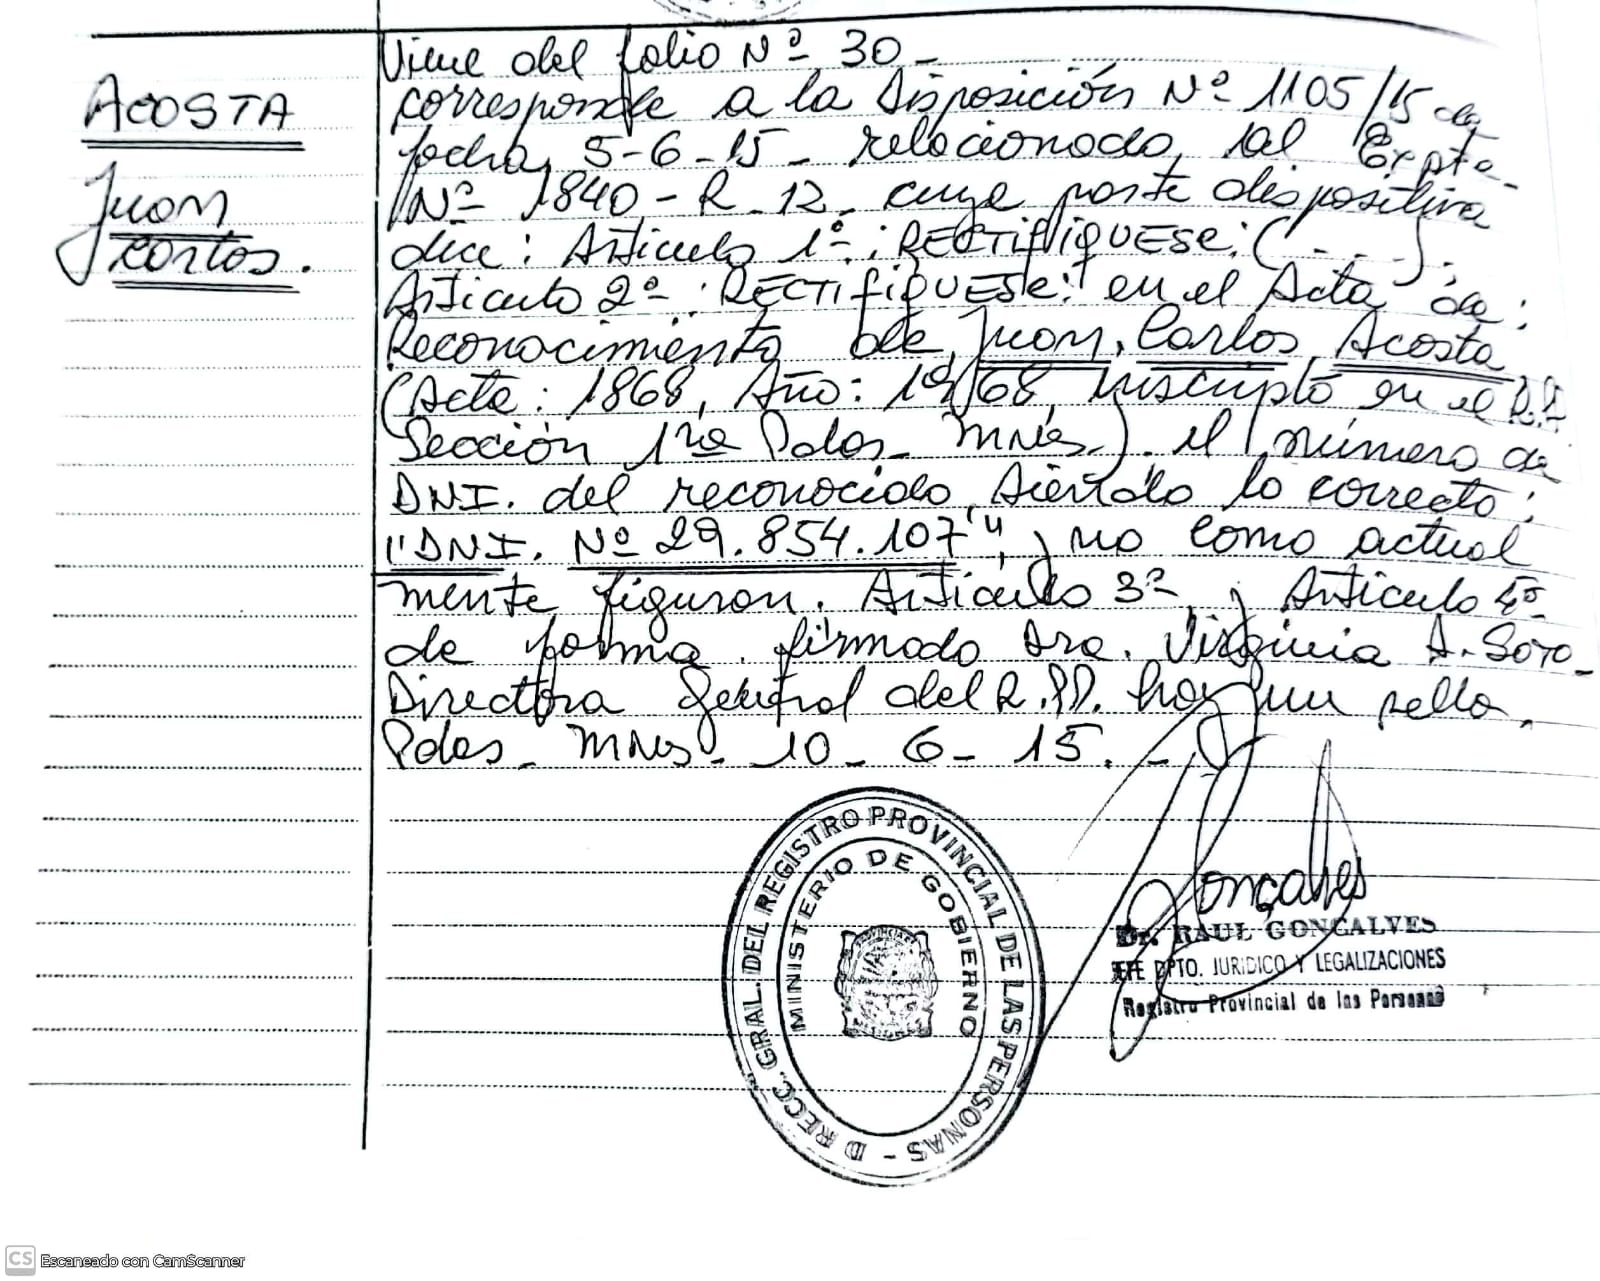 ACOSTA
Juan
Carlos.
Viene del folio Nº 30 _
corresponde a la Disposición Nº 1105/15 de
fecha, 5-6-15_ relacionado, al Expte_
Nº 1840-R_12_ cuya parte dispositiva
dice: Artículo 1º: RECTIFIQUESE: (.....).
Artículo 2º: RECTIFIQUESE: en el Acta de:
Reconocimiento de Juan, Carlos, Acosta
(Acta: 1868, Año: 1968, inscripto en el R.P.
Sección 1ra Pdas_ MNES.) el número de
DNI. del reconocido, siendo lo correcto:
"DNI. Nº 29.854.107" y no como actual
mente figuran. Artículo 3º y Artículo 4º
de forma. firmado Dra. Virginia A. Soto_
Directora General del R.PP. hay un sello.
Pdas_ MNES_ 10_ 6_ 15._
DRECC. GRAL. DEL REGISTRO PROVINCIAL DE LAS PERSONAS -
MINISTERIO DE GOBIERNO
Goncalves
Dr. RAUL GONCALVES
JEFE DPTO. JURIDICO Y LEGALIZACIONES
Registro Provincial de las Personas
CS Escaneado con CamScanner